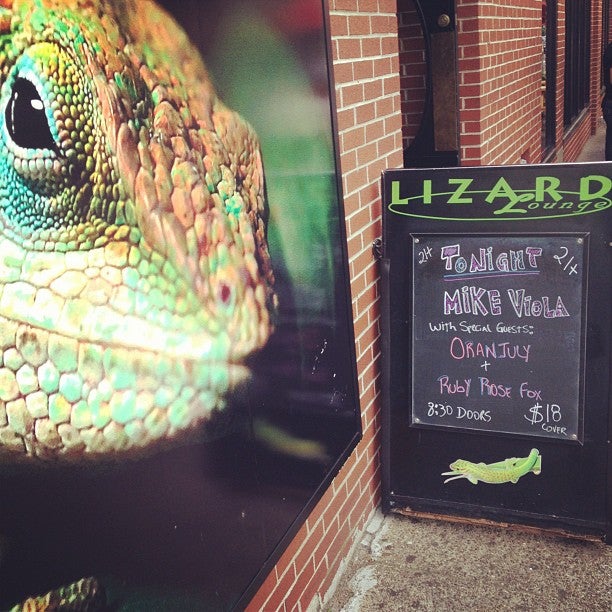 LIZARD
Lounge
21+ TONIGHT 21+
MIKE VIOLA
WITH SPECIAL GUESTS:
ORANJULY
+
RUBY ROSE FOX
8:30 DOORS $18
COVER